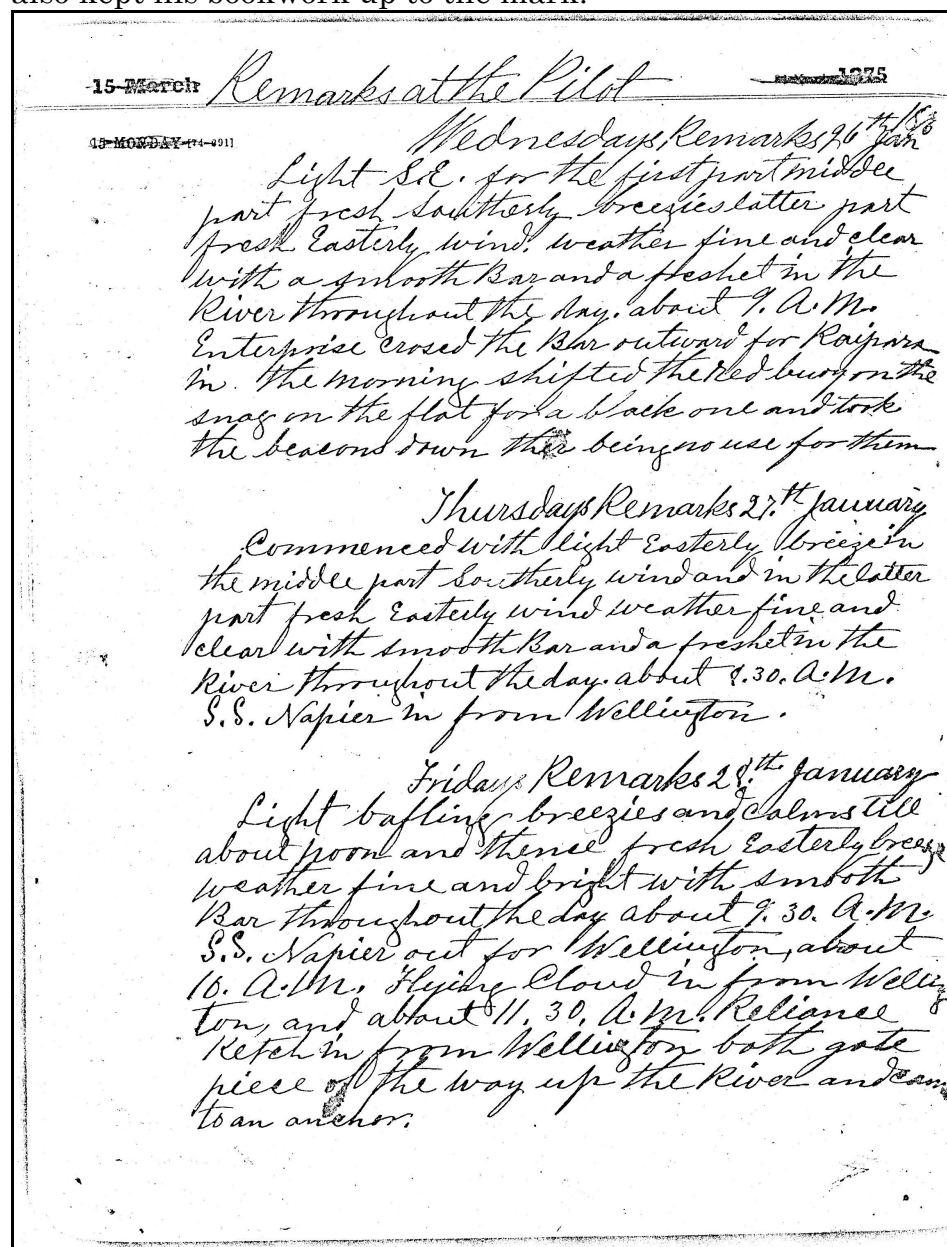 also kept his bookwork up to the mark.
15 March Remarks at the Pilot 1875
15-MONDAY (74-291)
Wednesdays Remarks 26th Jan
Light S.E. for the first part middle
part fresh Southerly breezies latter part
fresh Easterly wind. weather fine and clear
with a smooth Bar and a freshet in the
River throughout the day. about 9. A.M.
Enterprise crosed the Bar outward for Kaipara
in the morning shifted the Red buoy on the
snag on the flat for a black one and took
the beacons down ther being no use for them
Thursdays Remarks 27.th January
Commenced with light Easterly breeze in
the middle part Southerly wind and in the latter
part fresh Easterly wind weather fine and
clear with smooth Bar and a freshet in the
River throughout the day. about 9.30. A.M.
S.S. Napier in from Wellington.
Fridays Remarks 28.th January
Light bafling breezies and calms till
about noon and thence fresh Easterly breeze
weather fine and bright with smooth
Bar throughout the day about 9.30. A.M.
S.S. Napier out for Wellington, about
10. A.M. Flying Cloud in from Welling
ton, and about 11.30. A.M. Reliance
Ketch in from Wellington both gote
piece of the way up the River and cam
to an anchor.